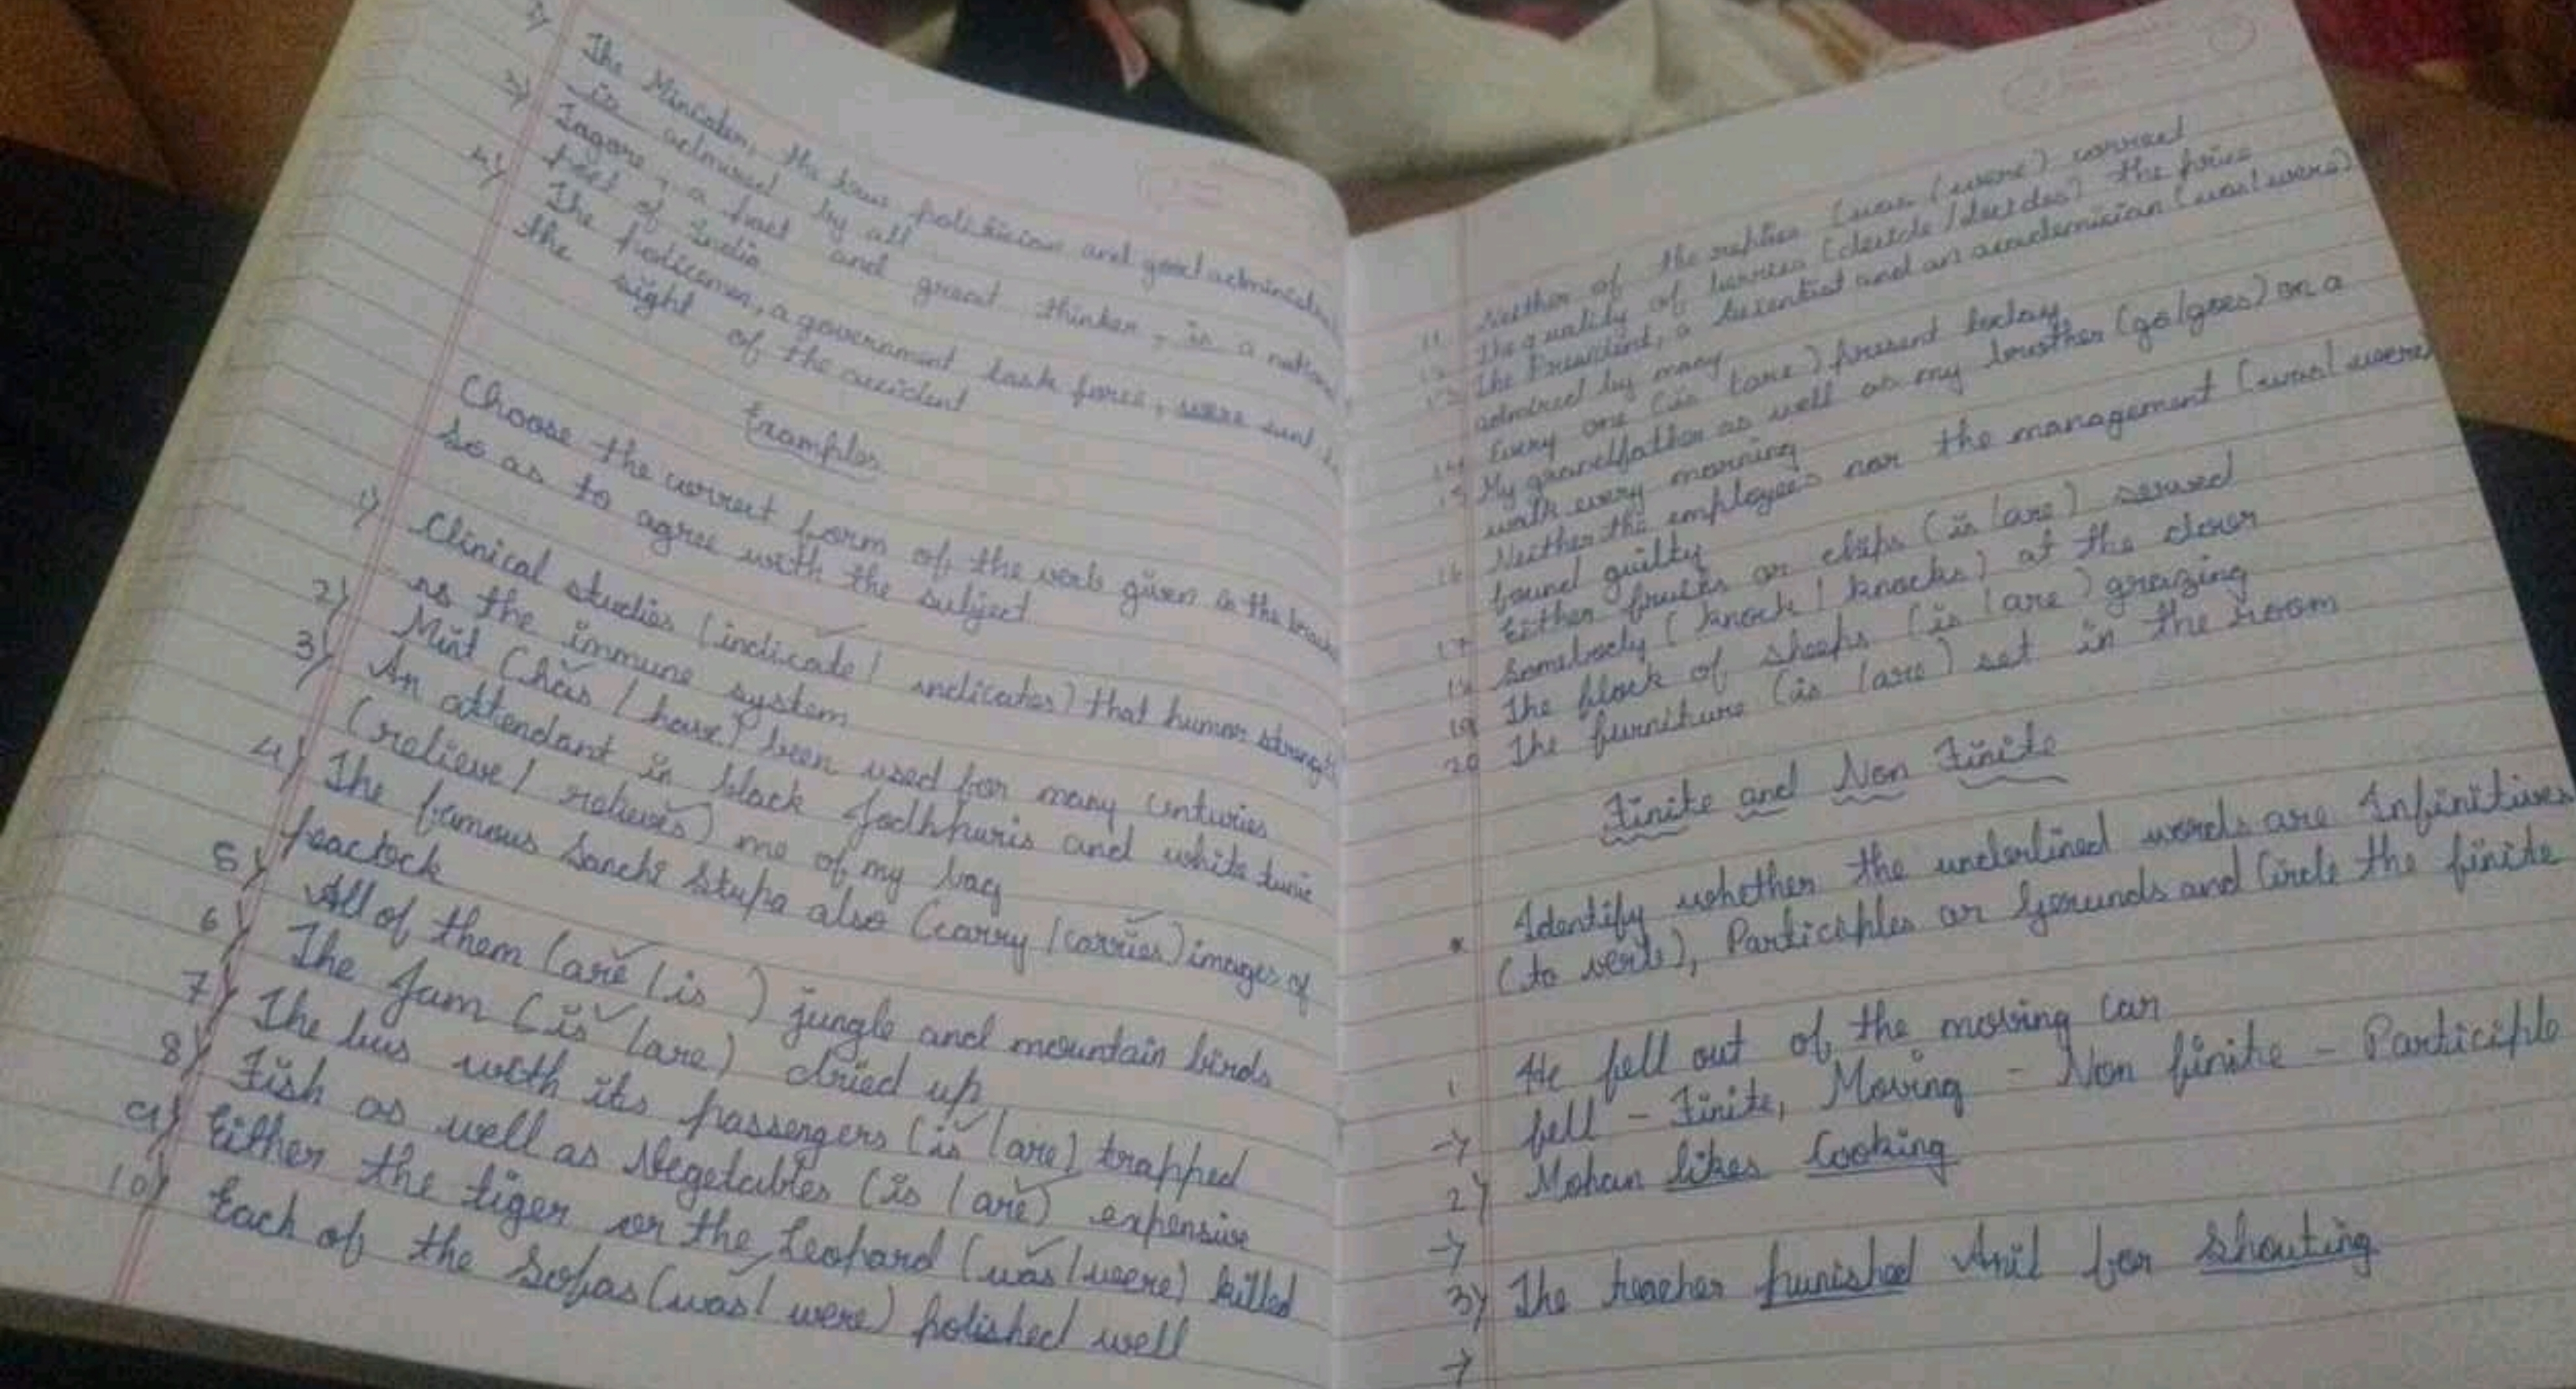 2)
The Minister, the true politician and good administrator
is admired by all
3) Tagore, a poet and great thinker, is a national
poet of India
4) The policemen, a government task force, were sent to
the sight of the accident
Examples
Choose the correct form of the verb given in the bracket
so as to agree with the subject
1) Clinical studies (indicate / indicates) that humor strength
ns the immune system
2) Mint (has / have) been used for many centuries
3) An attendant in black Jodhpuris and white tunic
(relieve / relieves) me of my bag
4) The famous Sanchi Stupa also (carry / carries) images of
peacock
5) All of them (are / is ) jungle and mountain birds
6) The Jam (is / are) dried up
7) The bus with its passengers (is / are) trapped
8) Fish as well as Vegetables (is / are) expensive
9) Either the tiger or the Leopard (was / were) killed
10) Each of the Sofas (was / were) polished well
11 Neither of the replies (was (were) correct
12 The quality of berries (decide / decides) the price
13 The President, a Scientist and an academician (was / were)
admired by many
14 Every one (is (are) present today
15 My grandfather as well as my brother (go/goes) on a
walk every morning
16 Neither the employees nor the management (was / were)
found guilty
17 Either fruits or chips (is / are) served
18 Somebody ( knock / knocks) at the door
19 The flock of sheeps (is / are) grazing
20 The furniture (is / are) set in the room
Finite and Non Finite
* Identify whether the underlined words are Infinitives
(to verb), Participles or Gerunds and Circle the finite
1 He fell out of the moving car
→ fell - Finite, Moving - Non finite - Participle
2) Mohan likes Cooking
→
3) The teacher punished Anil for Shouting
→